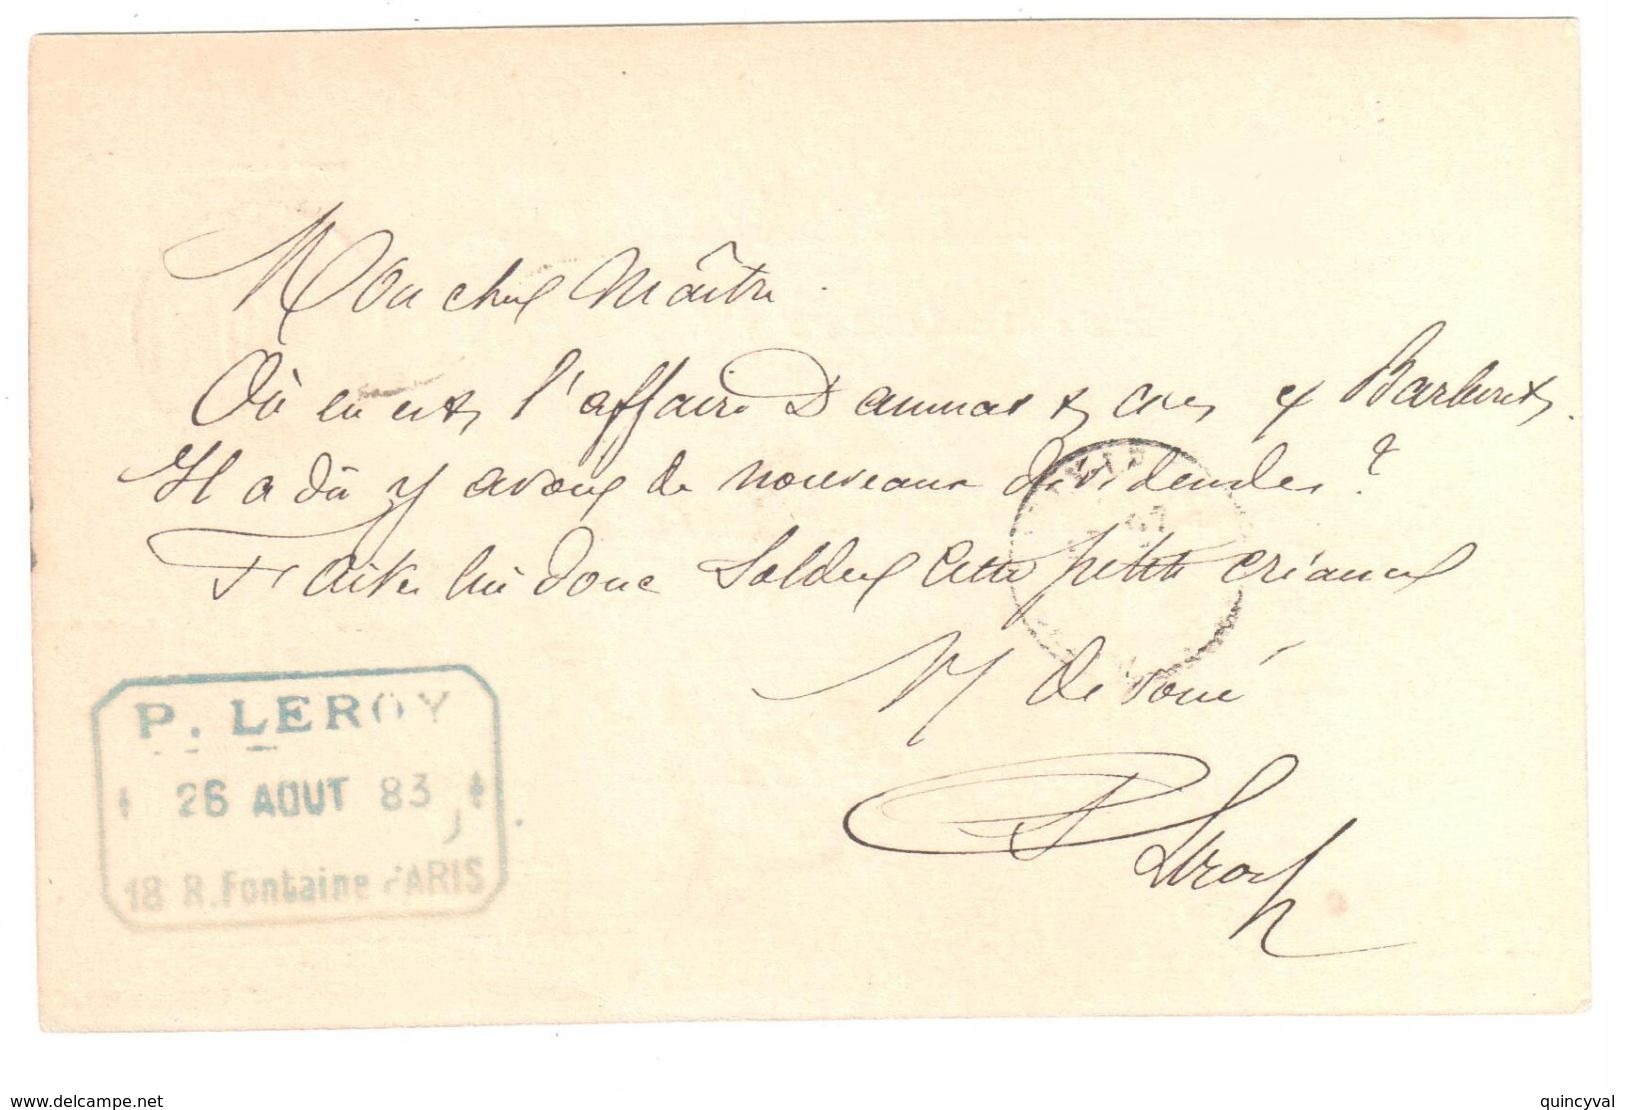 Mon cher Maître
Où en est l'affaire et Barberet.
Il a dû y avoir de nouveaux dividendes ?
Faites lui donc solder cette petite créance
dévoué
P Leroy
P. LEROY
26 AOUT 83
18 R. Fontaine PARIS
www.delcampe.net
quincyval